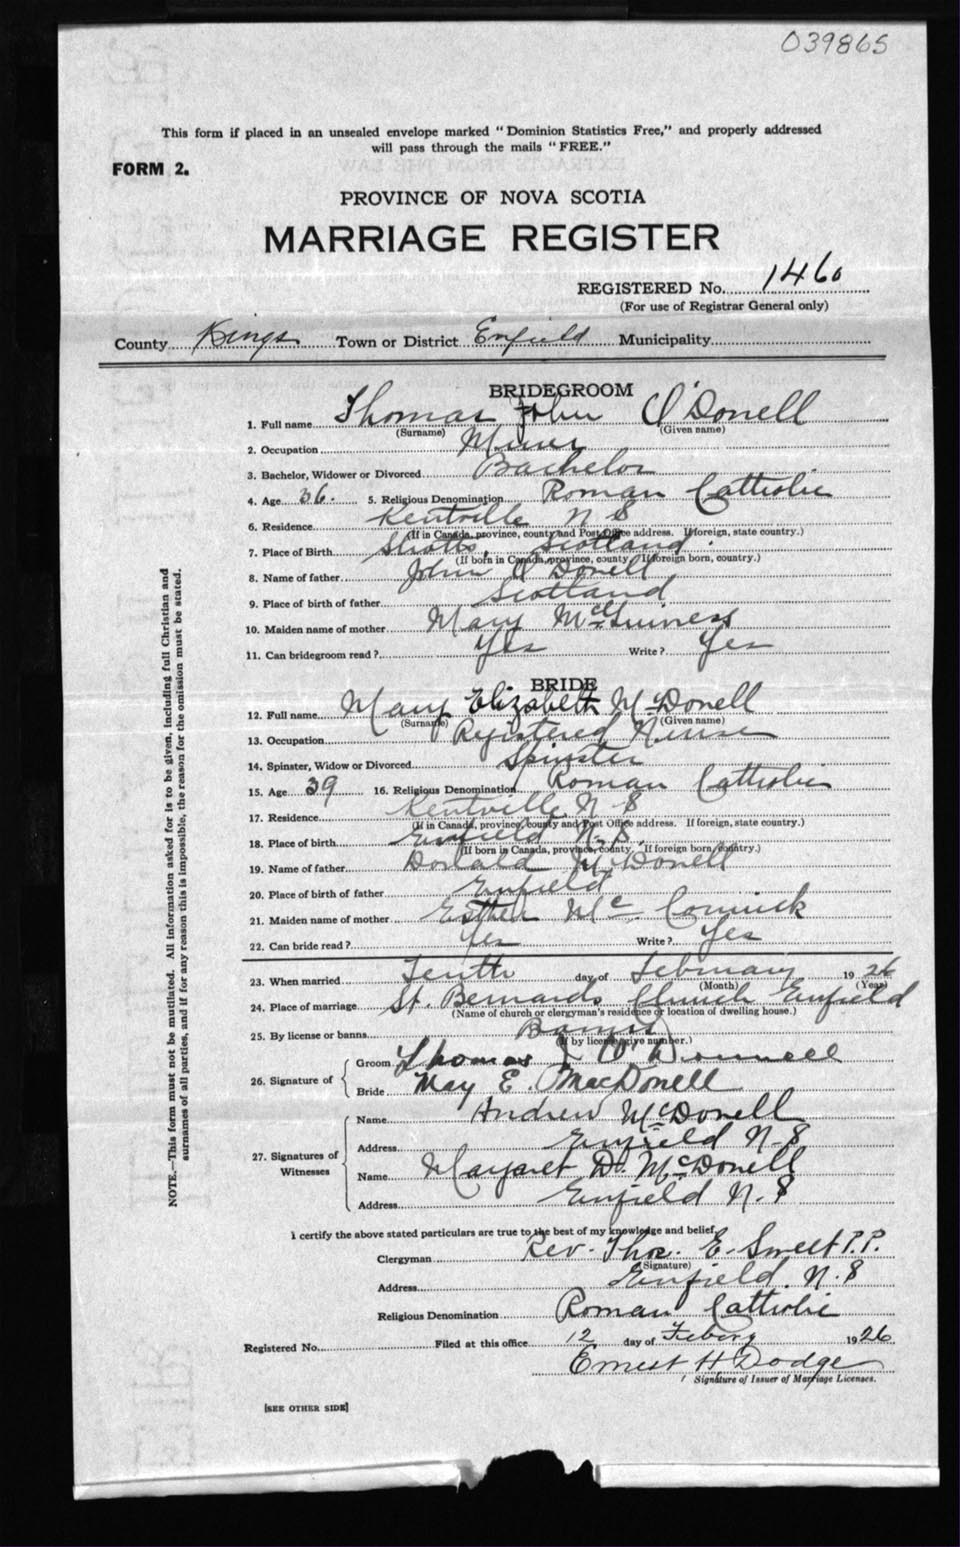 039865
This form if placed in an unsealed envelope marked "Dominion Statistics Free," and properly addressed
will pass through the mails "FREE."
FORM 2.
PROVINCE OF NOVA SCOTIA
MARRIAGE REGISTER
REGISTERED No. 1460
(For use of Registrar General only)
County Kings Town or District Enfield Municipality
BRIDEGROOM
1. Full name Thomas John O'Donell
(Surname) (Given name)
2. Occupation Miner
3. Bachelor, Widower or Divorced Bachelor
4. Age 36. 5. Religious Denomination Roman Catholic
6. Residence Kentville N S
(If in Canada, province, county and Post Office address. If foreign, state country.)
7. Place of Birth Shotts, Scotland.
(If born in Canada, province, county. If foreign born, country.)
8. Name of father John O'Donell
9. Place of birth of father Scotland
10. Maiden name of mother Mary McGuiness
11. Can bridegroom read? Yes Write? Yes
BRIDE
12. Full name Mary Elizabeth McDonell
(Surname) (Given name)
13. Occupation Registered Nurse
14. Spinster, Widow or Divorced Spinster
15. Age 39 16. Religious Denomination Roman Catholic
17. Residence Kentville N S
(If in Canada, province, county and Post Office address. If foreign, state country.)
18. Place of birth Enfield N.S.
(If born in Canada, province, county. If foreign born, country.)
19. Name of father Donald McDonell
20. Place of birth of father Enfield
21. Maiden name of mother Esther Mc. Cormick
22. Can bride read? Yes Write? Yes
23. When married Tenth day of February 19 26
(Month) (Year)
24. Place of marriage St. Bernards Church Enfield
(Name of church or clergyman's residence or location of dwelling house.)
25. By license or banns Banns
(If by license give number.)
26. Signature of Groom Thomas J O'Donnell
Bride May E. MacDonell
27. Signatures of Witnesses
Name Andrew McDonell
Address Enfield N-S
Name Margaret D. McDonell
Address Enfield N.S
I certify the above stated particulars are true to the best of my knowledge and belief,
Clergyman Rev. Thos. E. Sweet P.P.
(Signature)
Address Enfield. N.S
Religious Denomination Roman Catholic
Registered No. Filed at this office 12 day of Febery 1926
Ernest H Dodge
Signature of Issuer of Marriage Licenses.
[SEE OTHER SIDE]
NOTE.—This form must not be mutilated. All information asked for is to be given, including full Christian and
surnames of all parties, and if for any reason this is impossible, the reason for the omission must be stated.